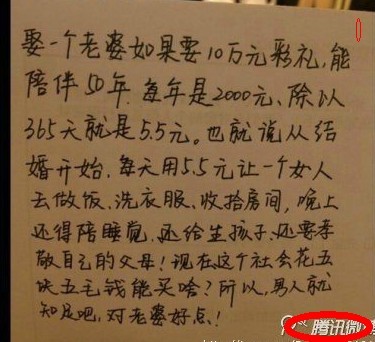 娶一个老婆如果要10万元彩礼,能
陪伴50年.每年是2000元、除以
365天就是5.5元。也就说从结
婚开始,每天用5.5元让一个女人
去做饭、洗衣服、收拾房间,晚上
还得陪睡觉,还给生孩子、还要孝
敬自己的父母!现在这个社会花五
块五毛钱能买啥?所以,男人就
知足吧,对老婆好点!
腾讯微